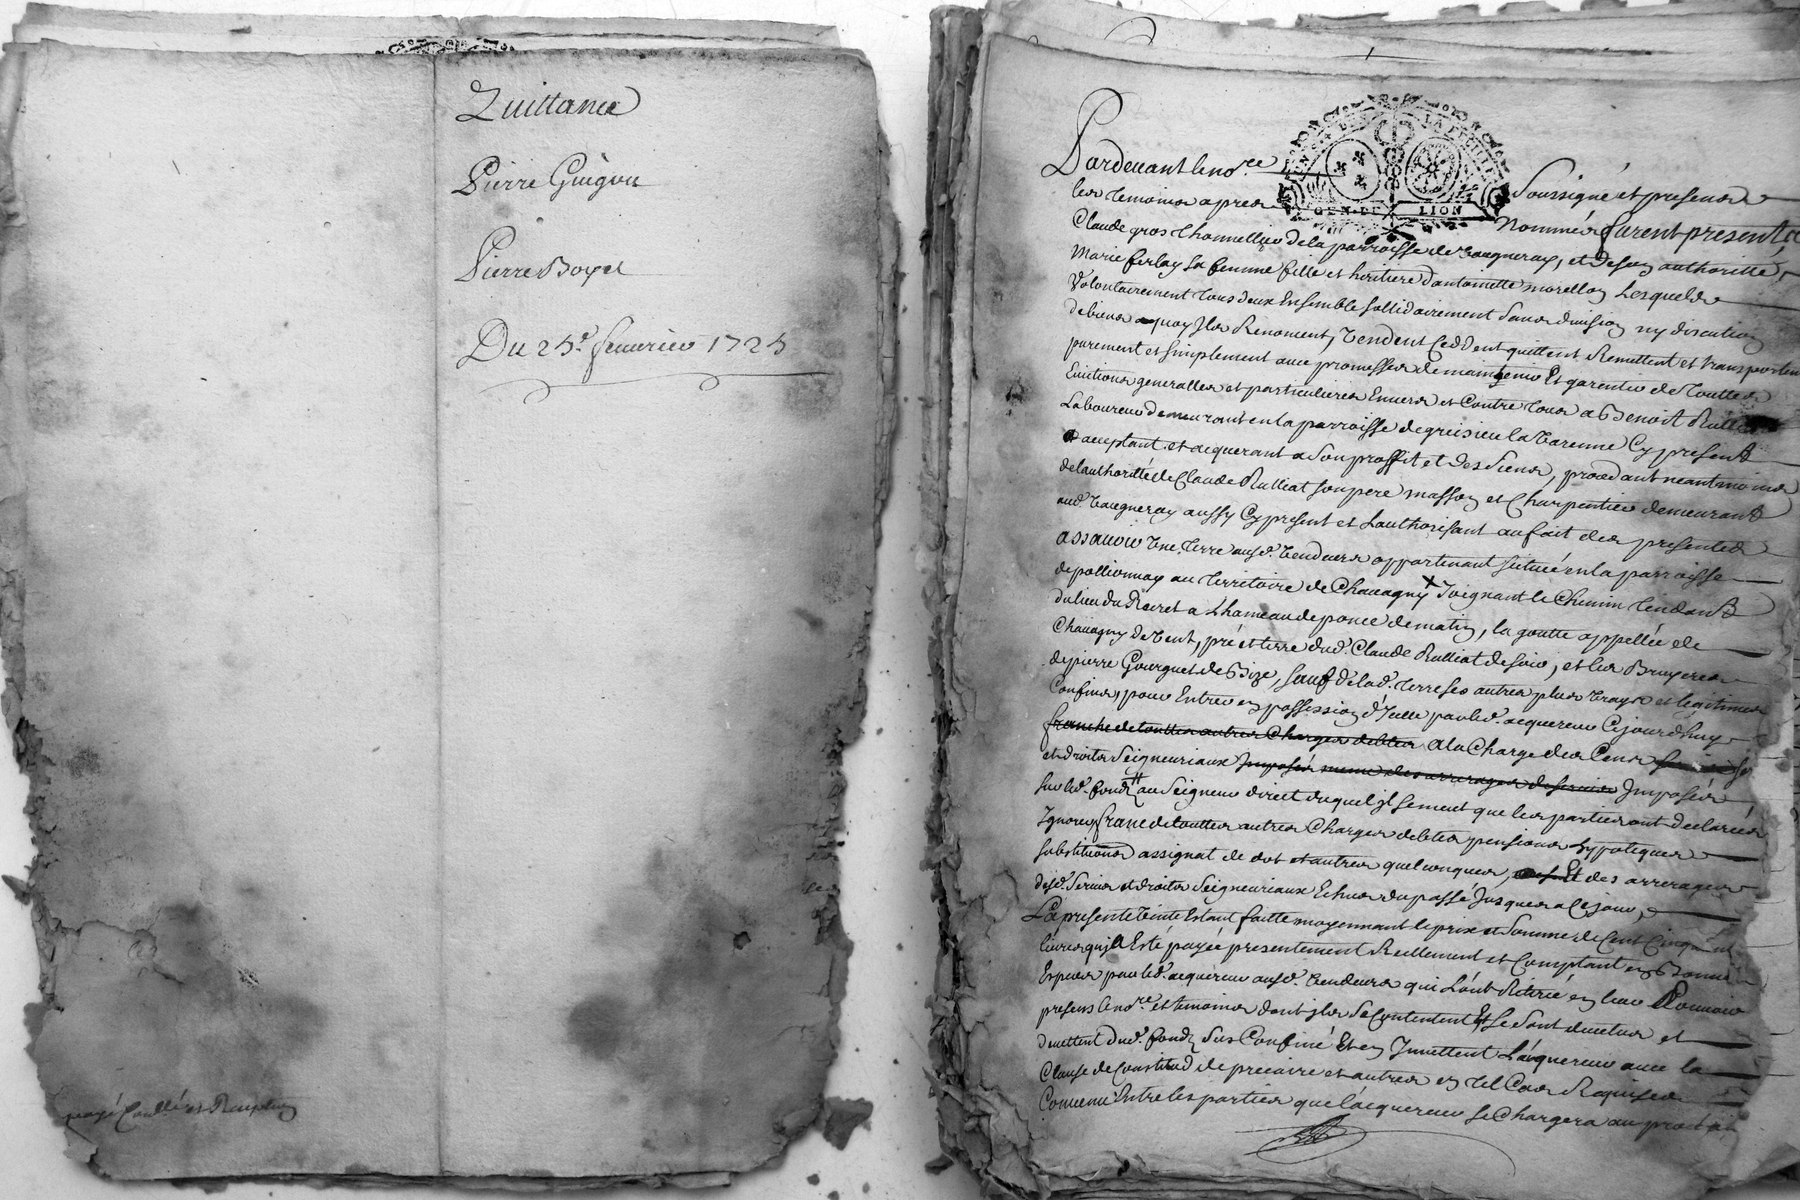 Quittance
Pierre Guigou
Pierre Boyet
Du 25e. feuurier 1725
payé Coullé et
GEN. DE LION
Pardeuant le nore. Soussigné et presens
les temoins apres Nommés furent presents
Claude gros thonnellier de la parroisse de vaugneray, et de son authoritté
Marie ferlay sa femme fille et heritiere d'antoinette morellon Lesquels
Volontairement tous deux Ensemble sollidairement sans diuision ny discution
de biens a quoy Ils Renoncent, Vendent Ceddent quittent Remettent et transportent
purement et simplement auec promesses de maintenir Et garentir de touttes
Euictions generalles et particulieres Enuers et Contre tous a Benoit Rulliat
Laboureur demeurant en la parroisse de greisieu la Varenne Cy present
acceptant et acquerant a Son proffit et des Siens, procedant neantmoins
de lauthorité de Claude Rulliat son pere masson et Charpentier demeurant
aud. Vaugneray aussy Cy present et Lauthorisant au fait des presentes
assauoir Vne Terre ausd. Vendeurs appartenant scituée en la parroisse
de pollionnay au Territoire de Chauagny X Joignant le Chemin Tendant
du lieu du Recret a L'hameau de ponce de matin, la goutte appellée de
Chauagny de Vent, pré et terre dud. Claude Rulliat de soir, et les Bruyeres
de pierre Gourguet de Bize, sauf de lad. terre ses autres plus Vrays et legitimes
Confins, pour Entrer en possession d'Icelle par led. acquereur Cejourdhuy
franche de touttes autres Charges debtes a la Charge des Cens
et droits Seigneuriaux Imposés meme des arrerages de seruis Imposés
sur led. fondz au Seigneur direct duquel Ils sement que les parties ont declarées
Ignorer, franc de touttes autres Charges debtes pensions hypoteques
substitutions assignat de dot et autres quelconques, Et des arrerages
desd. Seruis et droits Seigneuriaux Echus du passé Jusques a Cejour,
La presente Vente Estant faitte moyennant le prix et Somme de Cent Cinquante
liures qui a Esté payée presentement Reellement et Comptant en Bonnes
Especes par led. acquereur ausd. Vendeurs qui L'ont Retirée en leur Pouuoir
presens le nore. et temoins dont Ils Se Contentent Et Se Sont deuetus et
deuettent dud. fondz Sus Confiné Et en Inuettent L'acquereur auec la
Clause de Constitud de precaire et autres en tel Cas Requises
Conuenu Entre les parties que l'acquereur Se Chargera au